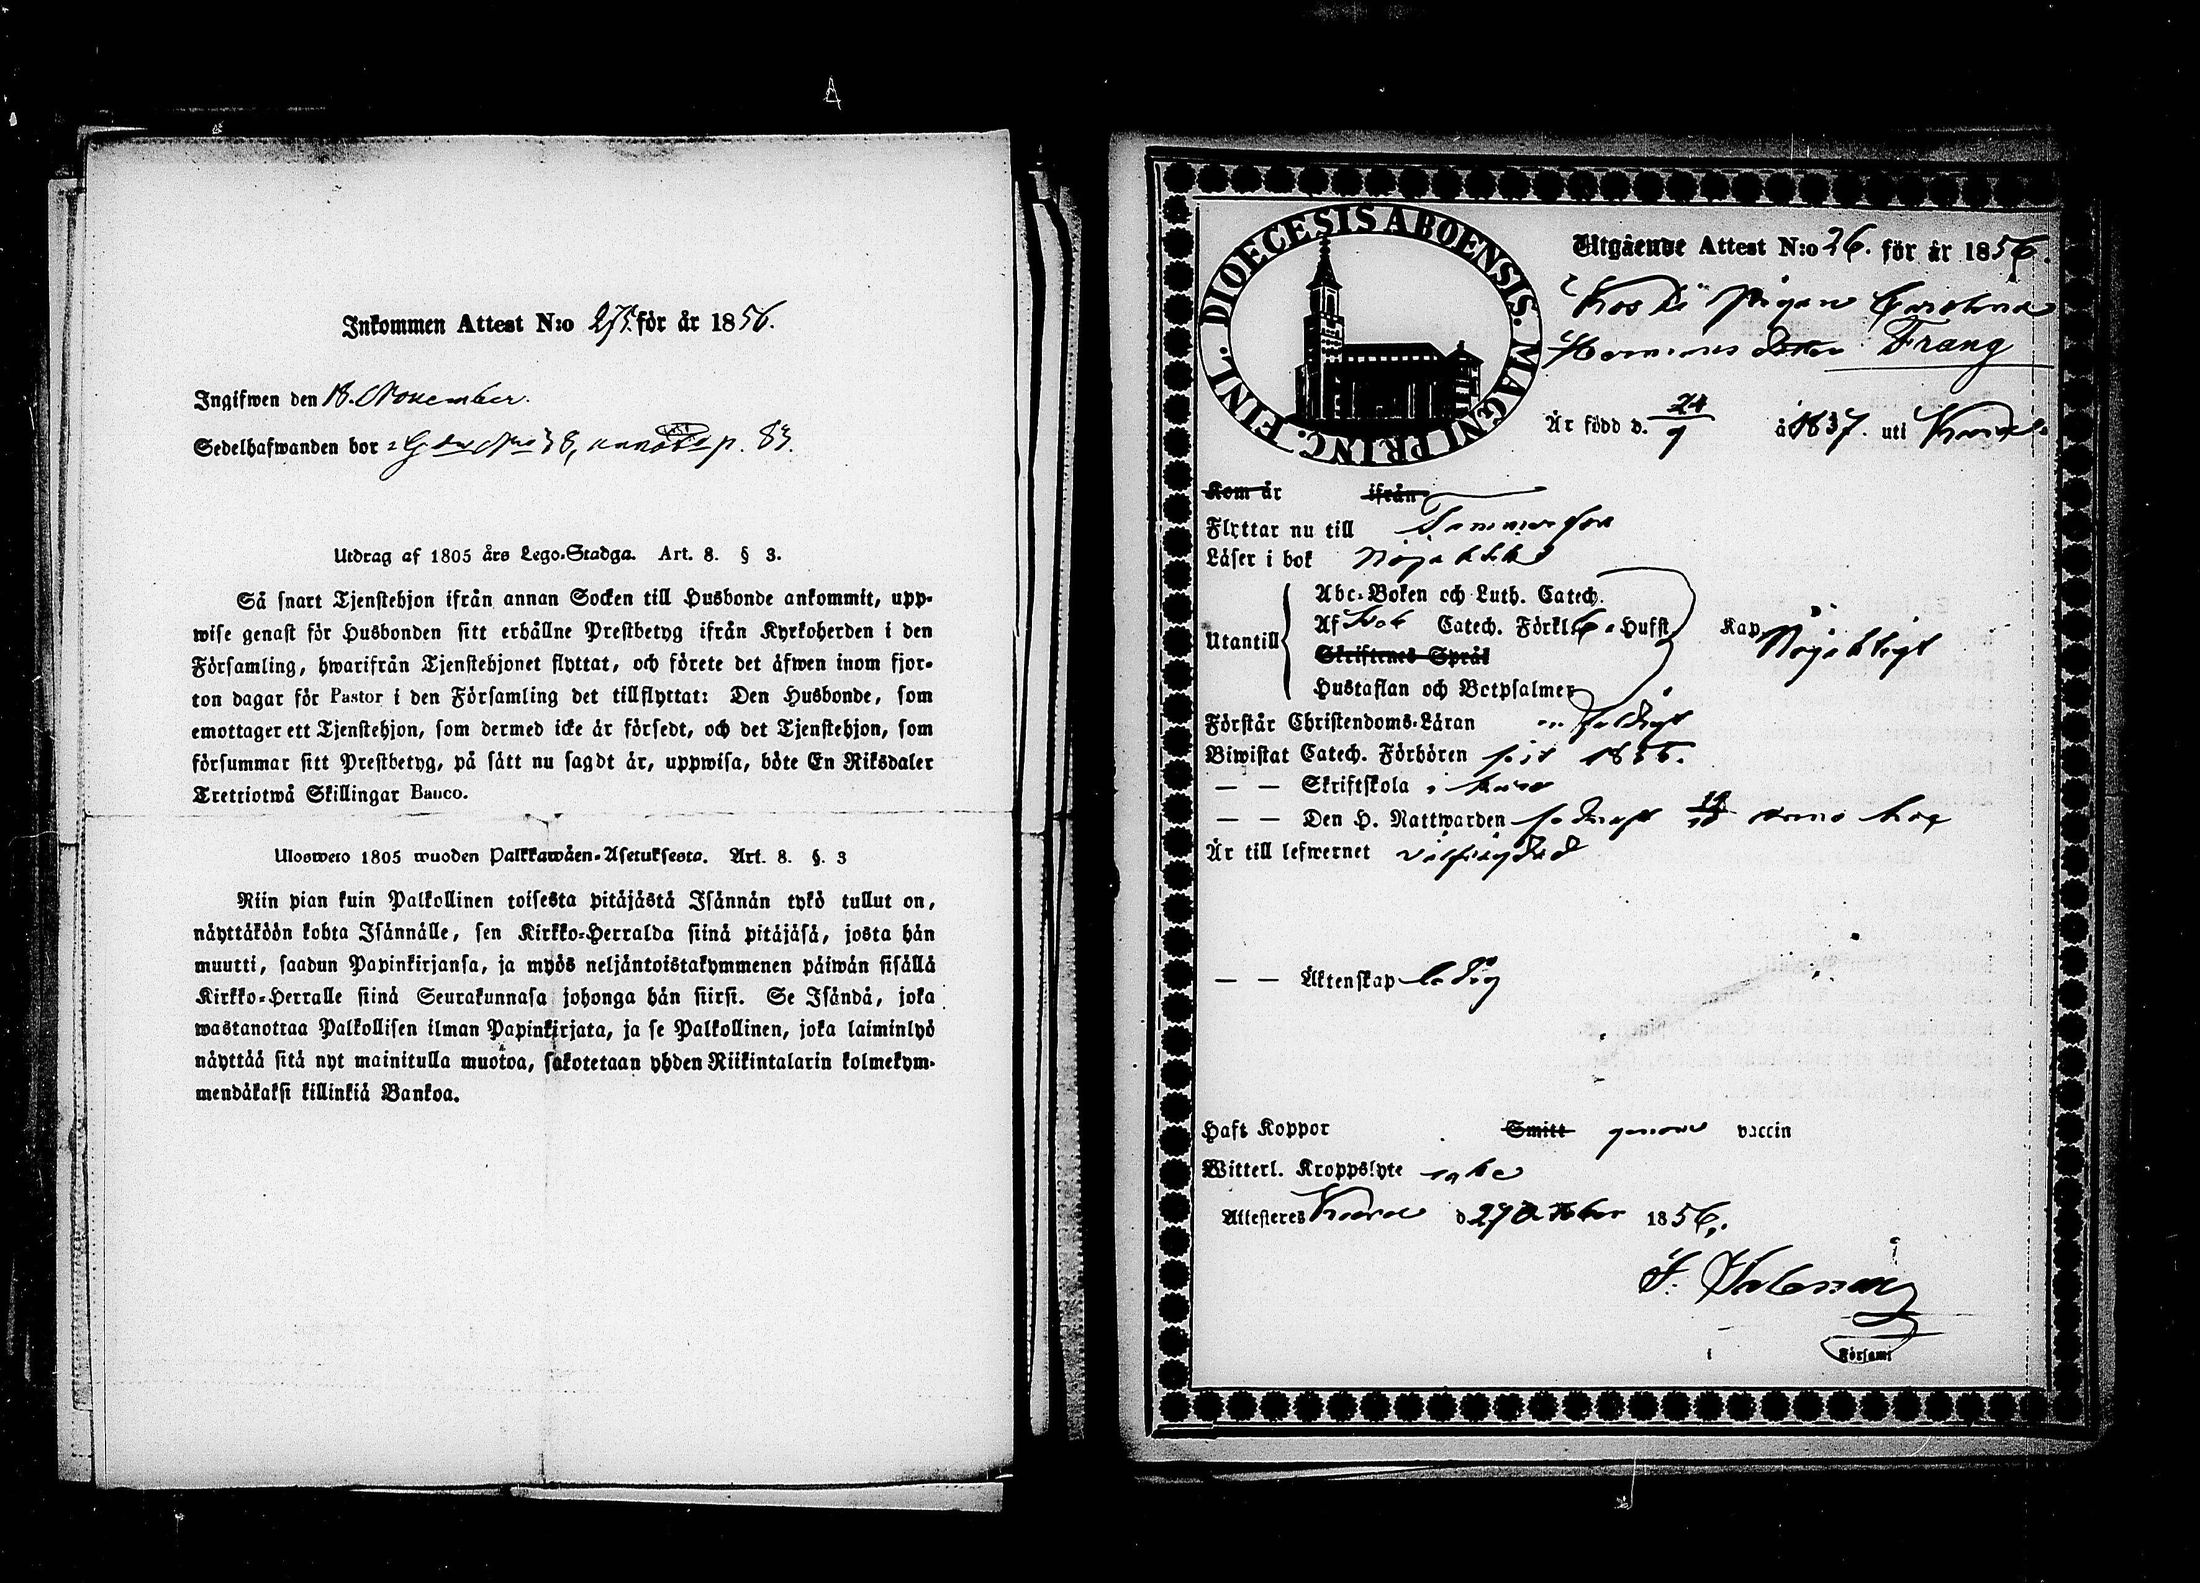 Inkommen Attest N:o 275. för år 1856.
Ingifwen den 18. November.
Sedelhafwanden bor p. 83.
Utdrag af 1805 års Lego-Stadga. Art. 8. § 3.
Så snart Tjenstehjon ifrån annan Socken till Husbonde ankommit, upp-
wise genast för Husbonden sitt erhållne Prestbetyg ifrån Kyrkoherden i den
Församling, hwarifrån Tjenstehjonet flyttat, och förete det äfwen inom fjor-
ton dagar för Pastor i den Församling det tillflyttat: Den Husbonde, som
emottager ett Tjenstehjon, som dermed icke är försedt, och det Tjenstehjon, som
försummar sitt Prestbetyg, på sätt nu sagdt är, uppwisa, böte En Riksdaler
Trettiotwå Skillingar Banco.
Ulosweto 1805 wuoden Palkkawäen-Asetuksesta. Art. 8. §. 3
Niin pian kuin Palkollinen toisesta pitäjästä Isännän tykö tullut on,
näyttäköön kohta Isännälle, sen Kirkko-Herralda siinä pitäjäsä, josta hän
muutti, saadun Papinkirjansa, ja myös neljäntoistakymmenen päiwän sisällä
Kirkko-Herralle siinä Seurakunnasa johonga hän siirsi. Se Isändä, joka
wastanottaa Palkollisen ilman Papinkirjata, ja se Palkollinen, joka laiminlyö
näyttää sitä nyt mainitulla muotoa, sakotetaan yhden Riikintalarin kolmekym-
mendäkaksi killinkiä Bankoa.
DIOECESIS ABOENSIS. MAGNI PRINC. FINL.
Utgående Attest N:o 26. för år 1856.
Pigan Carolina
Hermansdotter Frang
Är född d. 24/9 å 1837. uti
Kom år ifrån
Flyttar nu till Tammerfors
Läser i bok Nöjaktigt
Utantill
Abc-Boken och Luth. Catech.
Af Catech. Förkl. Hufst Kap
Skriftenes Språk
Nöjaktigt
Hustaflan och Botpsalmer
Förstår Christendoms-Läran
Biwistat Catech. Förhören
— — Skriftskola
— — Den H. Nattwarden
Är till lefwernet välfrägdad
— — Äktenskap ledig
Haft Koppor Smitt genom vaccin
Witterl. Kroppslyte icke
Attesteres d 27 October 1856.
Församl